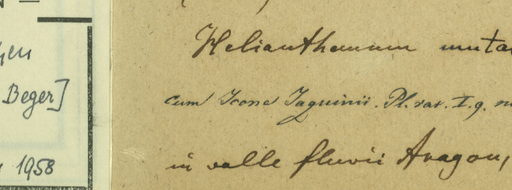 Beger]
1958
Helianthemum
cum Icone Jaquinii. Pl. rar. I. 9.
in valle fluvii Aragon,